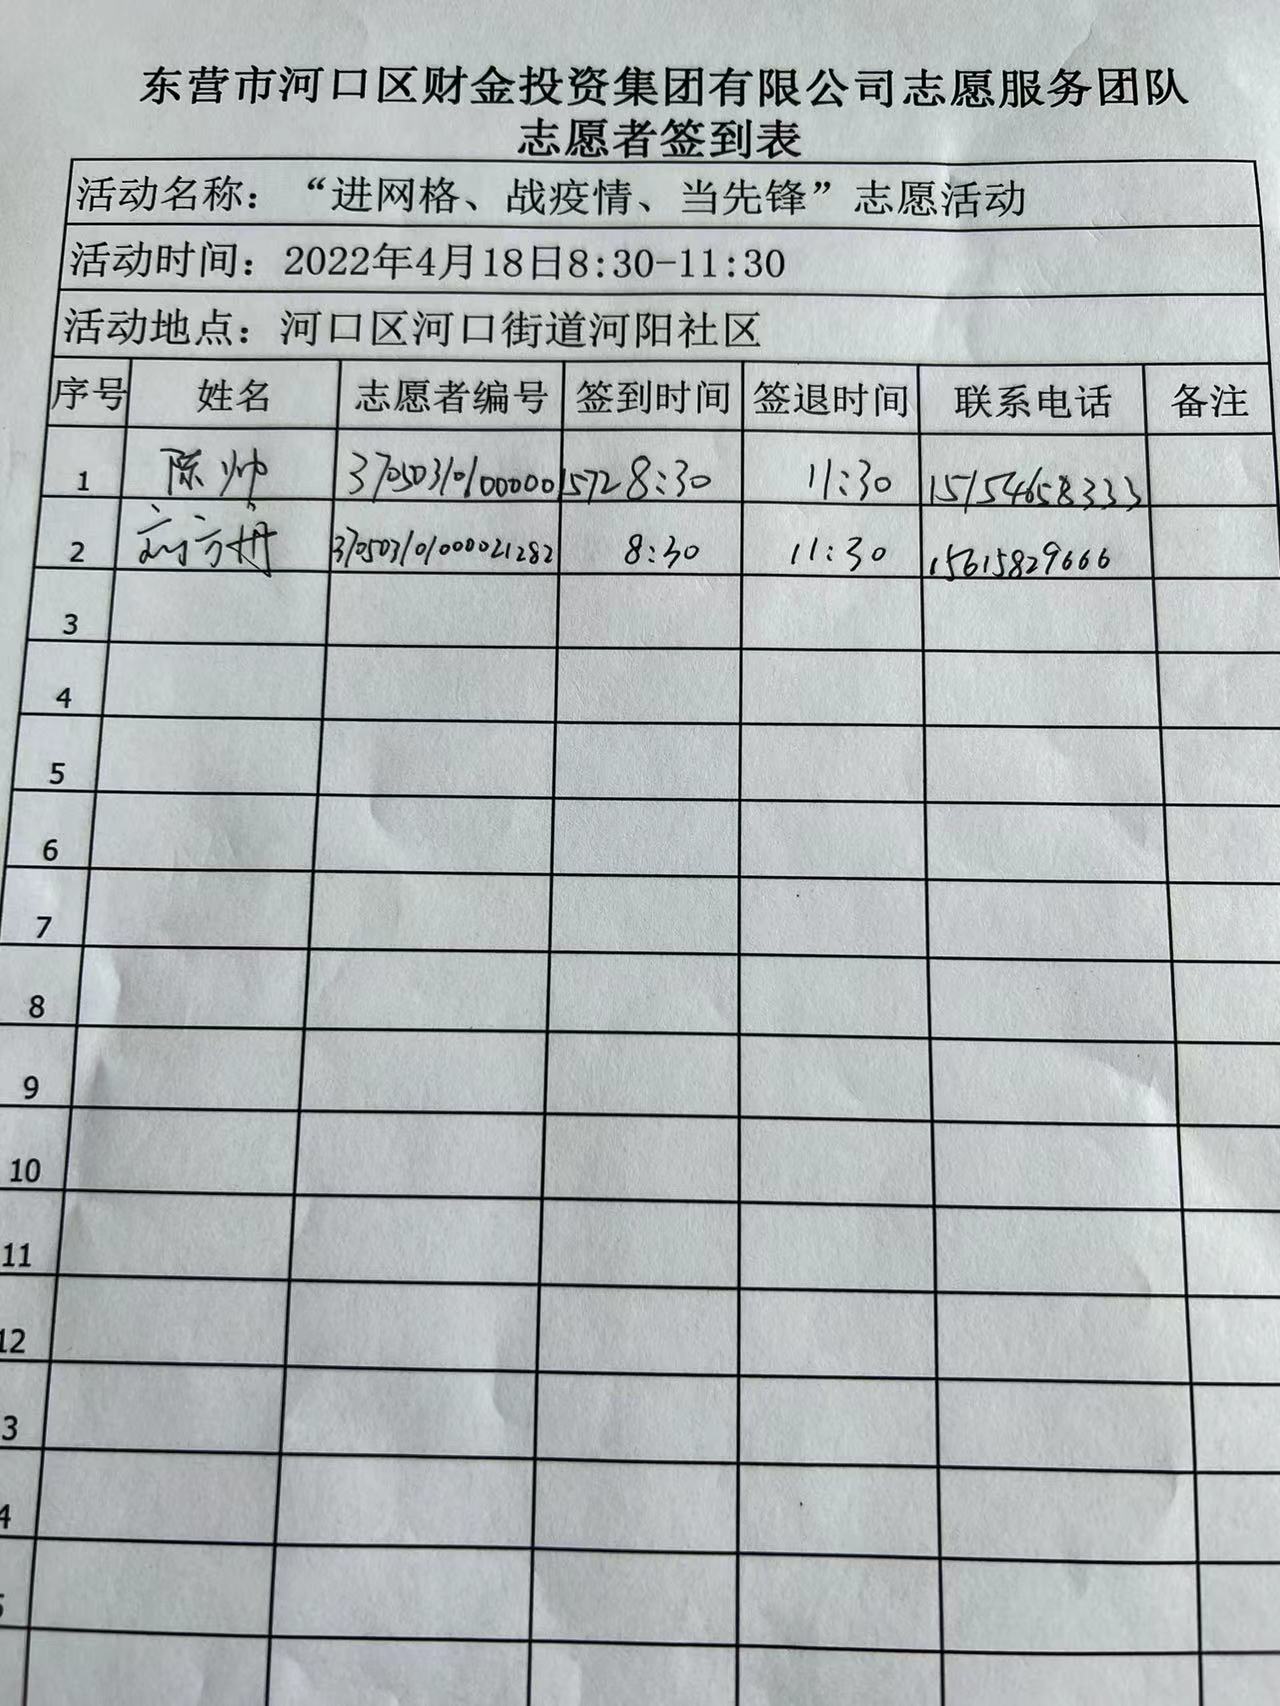 东营市河口区财金投资集团有限公司志愿服务团队
志愿者签到表
活动名称：“进网格、战疫情、当先锋”志愿活动
活动时间：2022年4月18日8:30-11:30
活动地点：河口区河口街道河阳社区
序号 姓名 志愿者编号 签到时间 签退时间 联系电话 备注
1 陈帅 37050310100000015728 8:30 11:30 15154658333
2 370503101000021282 8:30 11:30 15615829666
3
4
5
6
7
8
9
10
11
12
3
4
5